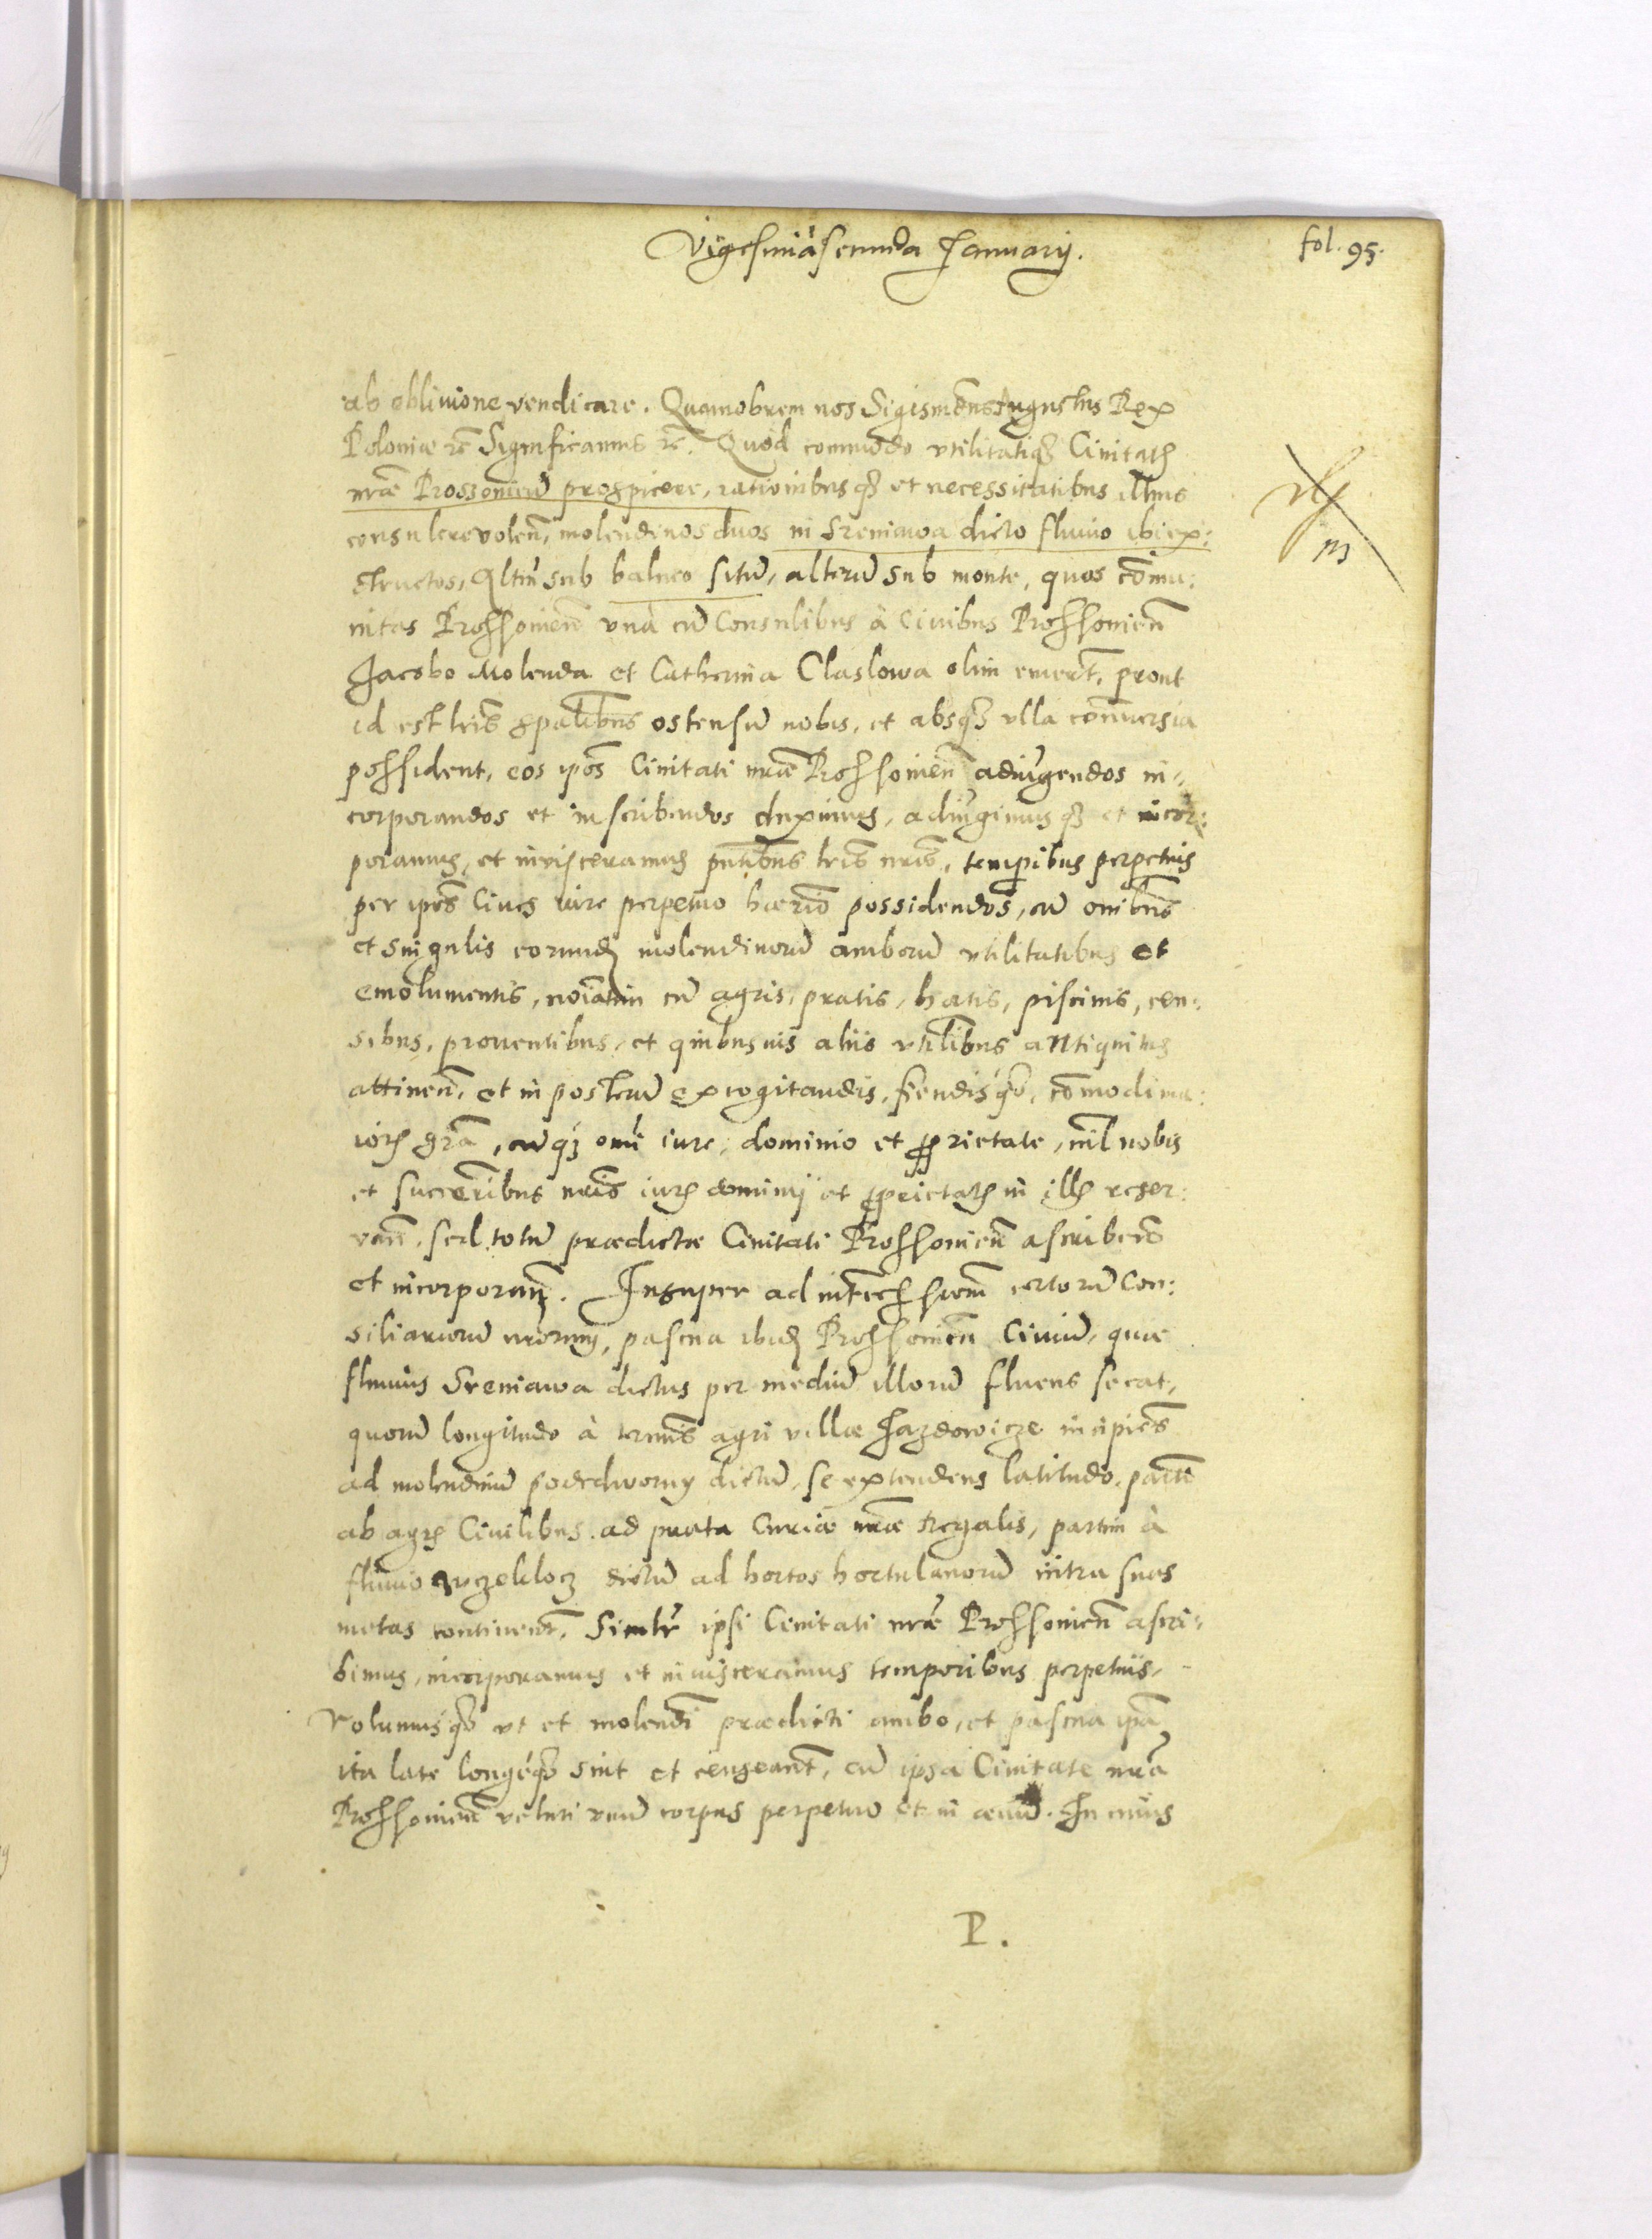 Vigesima secunda Januarij.
fol. 95.
ab obliuione vendicare. Quamobrem nos Sigismūdus Augustus Rex
Poloniæ rē Significamus rē. Quòd commodo vtilitatiq₃ Ciuitatꝭ
nr̄æ Proszouien̄ prospicere, rationibusq₃ et necessitatibus illius
consulere volen̄, molendinos duos in Sreniawa dicto fluuio ibi ex:
structos, Alterū sub balneo sitū, alterū sub monte, quos cōmu:
nitas Proſſouien̄ vnà cū Consulibus à Ciuibus Proſſouien̄
Jacobo Molenda et Catherina Claslowa olim emert̄, prout
id est lr̄is spālibus ostensū nobis, et absq₃ vlla contrōuersia
poſſident, eos ip̄os Ciuitati nr̄æ Proſſouien̄ adiūgendos in-
corporandos et inscribendos duximus, adiūgimusq₃ et incor:
poramus, et inuisceramus pn̄tibus lr̄is nr̄is, tempibus perpetuis
per ip̄os Ciues iure perpetuo hærio possidendos, cū om̄ibus
et singulis eorundꝭ molendinorū amborū vtilitatibus et
emolumentis, noīatim cū agris, pratis, hortis, piscinis, cen:
sibus, prouentibus, et quibusuis aliis vtilibus antiquitus
attinen̄, et in posterū excogitandis, fiendisq₃, cōmodi ma:
iorꝭ gr̄a, cūq₃ omi iure, dominio et ꝓprietate, nil nobis
et succeſſoribus nr̄is iurꝭ dominij et ꝓprietatꝭ in illꝭ reser:
van̄, sed totū prædictæ Ciuitati Proſſouien̄ ascribens
et incorporan̄. Insuper ad intērceſſionē certorū Con:
siliariorū nr̄orum, pascua ibidꝭ Proſſouien̄ Ciuiū, quæ
fluuius Sreniawa dictus per mediū illorū fluens secat,
quorū longitudo à termīs agri villæ Jazdowicze incipiēs
ad molendinū podedworny dictū, se extendens latitudo, partī
ab agrꝭ Ciuilibus ad prata Curiæ nr̄æ Regalis, partim à
fluuio dictū ad hortos hortulanorū intra suas
metas continent̄, Similr̄ ipsi Ciuitati nr̄æ Proſſouien̄ ascri-
bimus, incorporamus et inuisceramus temporibus perpetuis,
Volumusq₃ vt et molendī prædicti ambo, et pascua ip̄a
ita latè longèq₃ sint et censeant̄, cū ipsa Ciuitate nr̄a
Proſſouien̄ veluti vnū corpus perpetuò et in æuū. In cuius
P.